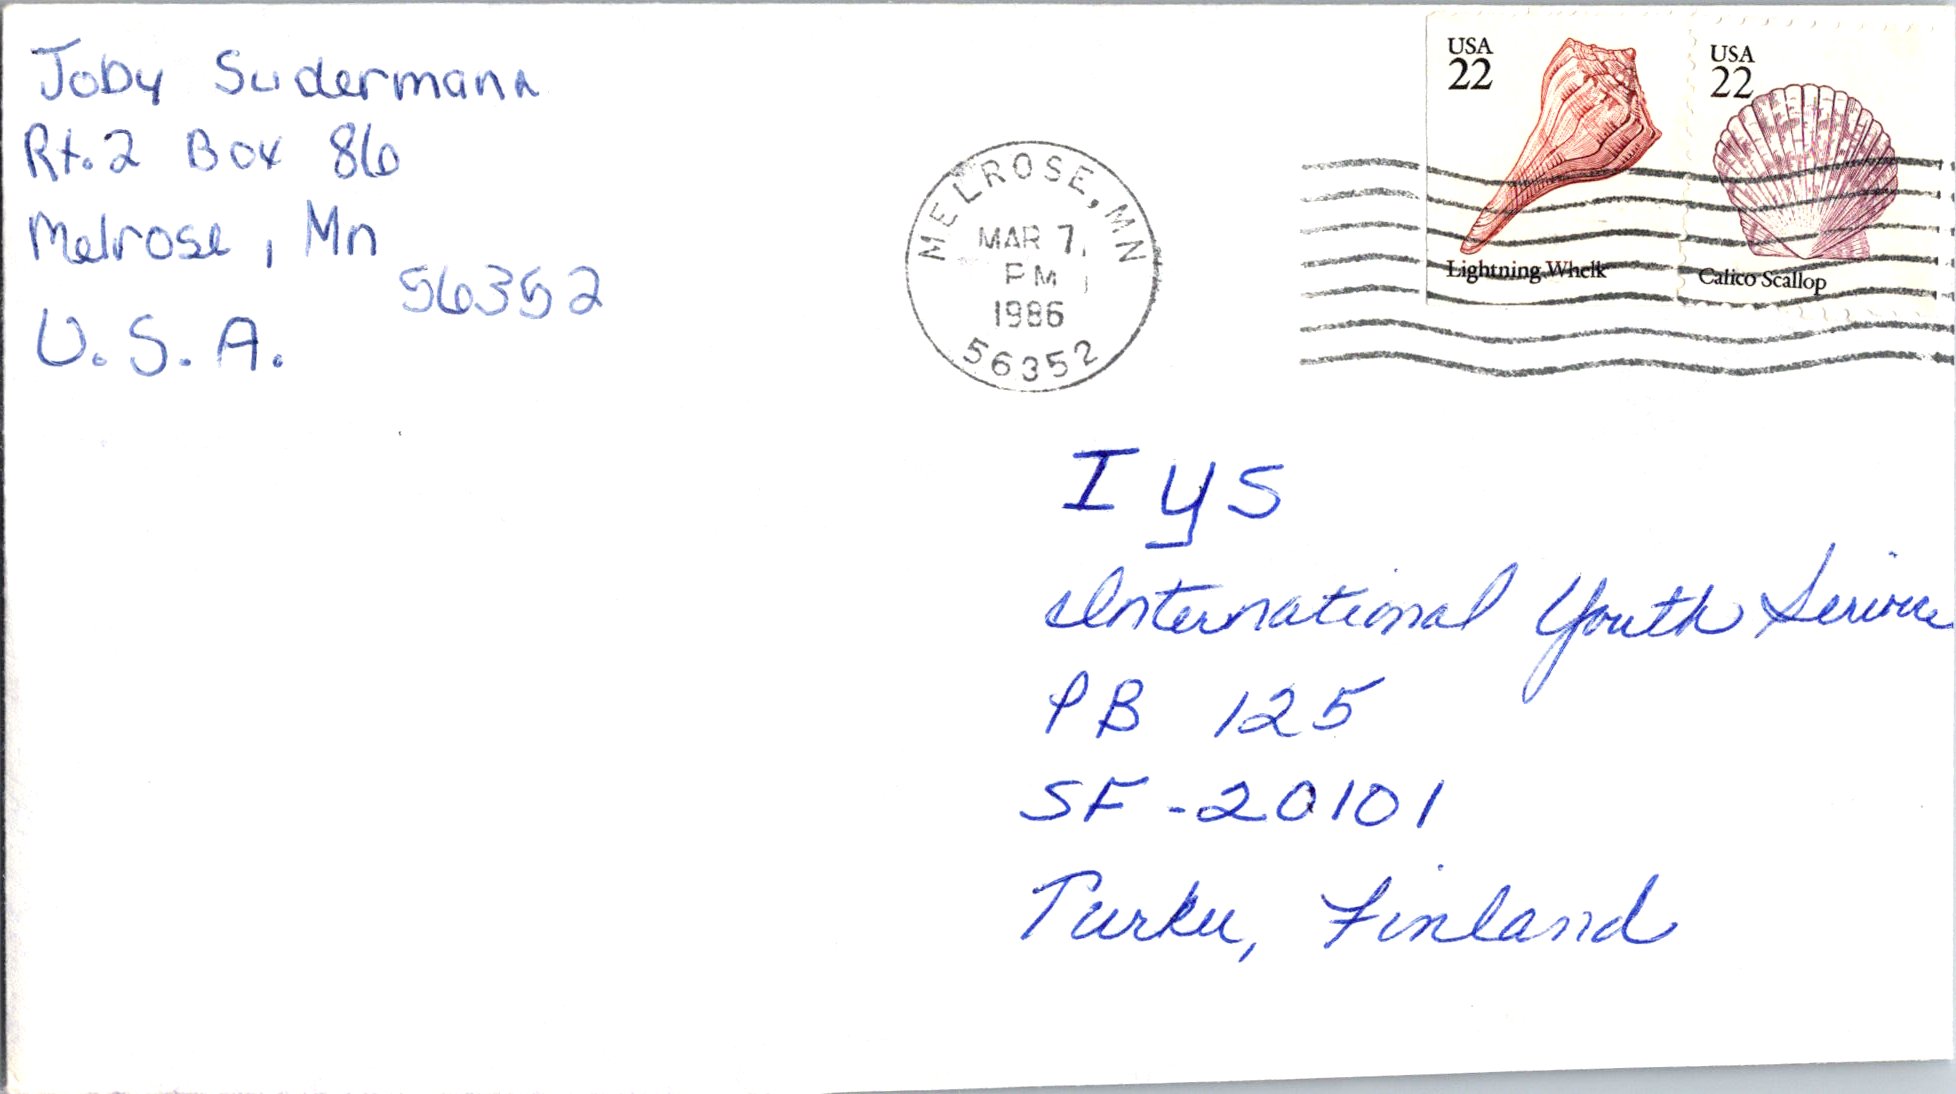 Joby Sudermann
Rt. 2 Box 86
Melrose, Mn
56352
U.S.A.
MELROSE, MN
MAR 7,
PM
1986
56352
USA
22
Lightning Whelk
USA
22
Calico Scallop
IYS
International Youth Service
PB 125
SF-20101
Turku, Finland